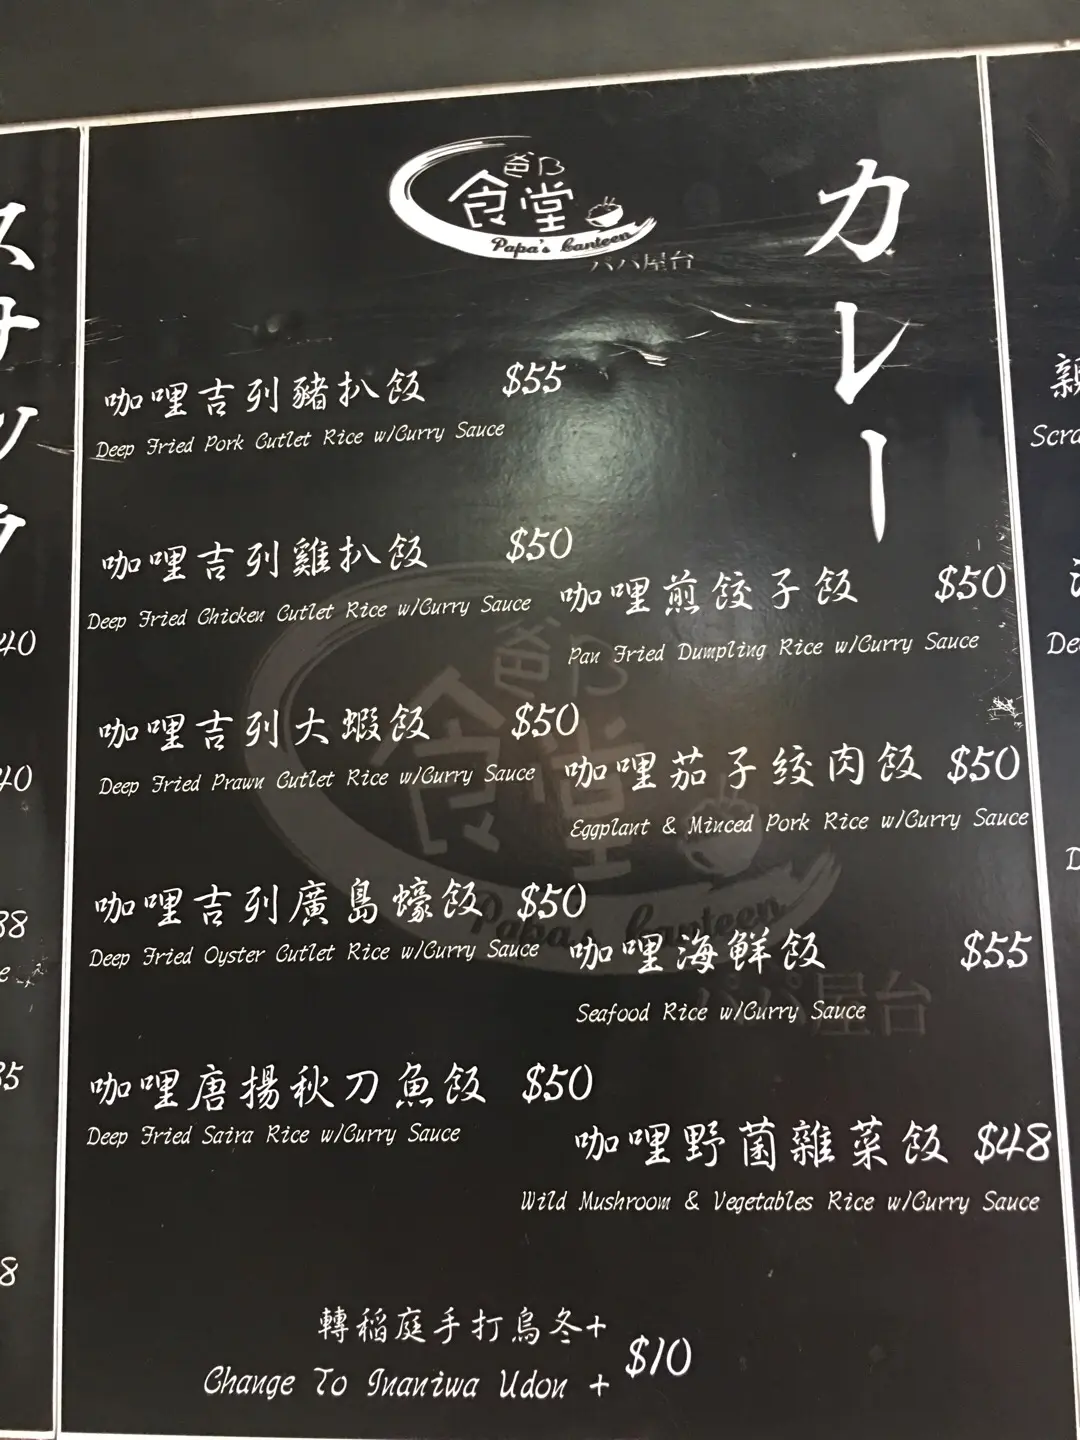 爸B
食堂
Papa's Canteen
パパ屋台
カレー
咖哩吉列豬扒飯 $55
Deep Fried Pork Cutlet Rice w/Curry Sauce
咖哩吉列雞扒飯 $50
Deep Fried Chicken Cutlet Rice w/Curry Sauce
咖哩吉列大蝦飯 $50
Deep Fried Prawn Cutlet Rice w/Curry Sauce
咖哩吉列廣島蠔飯 $50
Deep Fried Oyster Cutlet Rice w/Curry Sauce
咖哩唐揚秋刀魚飯 $50
Deep Fried Saira Rice w/Curry Sauce
咖哩煎餃子飯 $50
Pan Fried Dumpling Rice w/Curry Sauce
咖哩茄子絞肉飯 $50
Eggplant & Minced Pork Rice w/Curry Sauce
咖哩海鮮飯 $55
Seafood Rice w/Curry Sauce
咖哩野菌雜菜飯 $48
Wild Mushroom & Vegetables Rice w/Curry Sauce
轉稲庭手打烏冬+
Change To Inaniwa Udon + $10
爸B
食堂
Papa's Canteen
パパ屋台